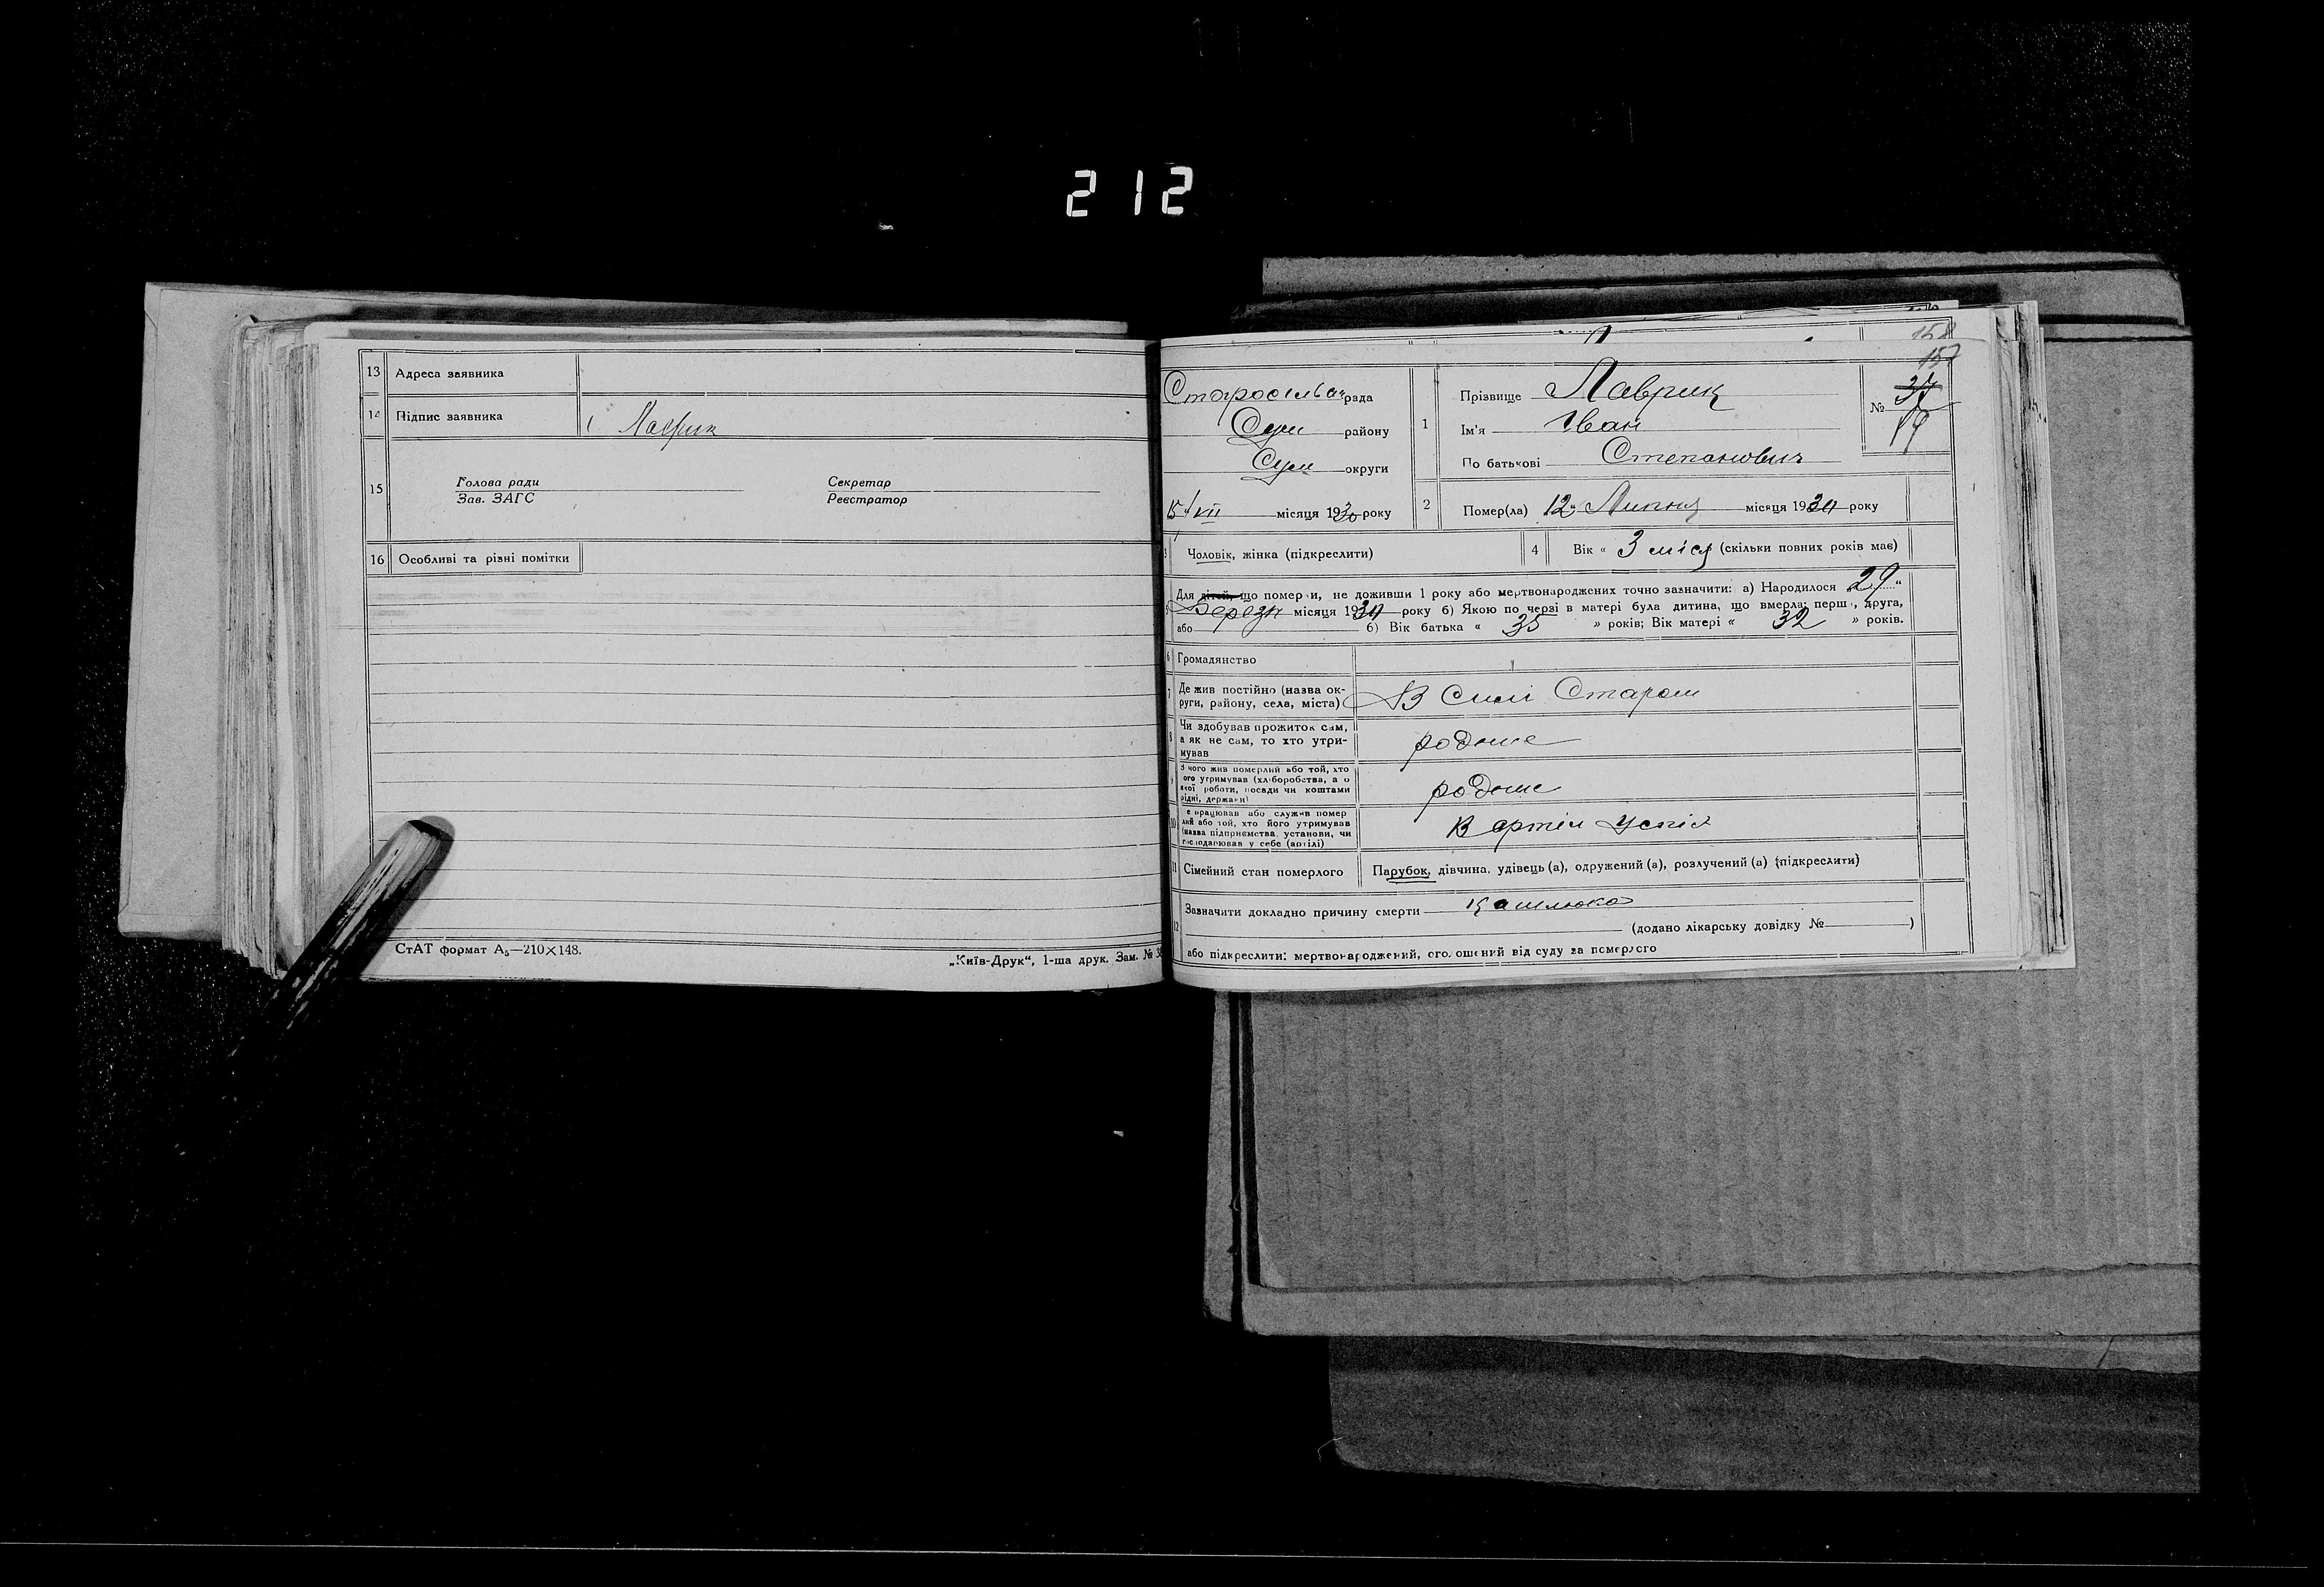 212
13 Адреса заявника
14 Підпис заявника Лаврик
15 Голова ради Секретар
Зав. ЗАГС Реєстратор
16 Особливі та різні помітки
СтАТ формат А₅—210×148.
„Київ-Друк“, 1-ша друк. Зам. №
158
157
рада
Суми району
Суми округи
15 VII місяця 1930 року
1 Прізвище Лаврик
Ім'я Іван
По батькові Степанович
№ 37
19
2 Помер(ла) 12 Липня місяця 1930 року
3 Чоловік, жінка (підкреслити)
4 Вік « 3 міся (скільки повних років має)
5 Для дітей, що померли, не доживши 1 року або мертвонароджених точно зазначити: а) Народилося „29“
Березн місяця 1930 року б) Якою по черзі в матері була дитина, що вмерла: перш , друга,
або б) Вік батька « 35 » років; Вік матері « 32 » років.
6 Громадянство
7 Де жив постійно (назва ок-
руги, району, села, міста) В Селі Старом
8 Чи здобував прожиток сам,
а як не сам, то хто утри-
мував
9 З чого жив померлий або той, хто
ого утримував (хліборобства, а о
якої роботи, посади чи коштами
рідні, держави)
10 е працював або служив помер
лий або той, хто його утримував
(назва підприємства, установи, чи
господарював у себе (артілі) В артіл Успіх
11 Сімейний стан померлого Парубок, дівчина, удівець (а), одружений (а), розлучений (а) (підкреслити)
12 Зазначити докладно причину смерти
(додано лікарську довідку № )
або підкреслити: мертвонароджений, оголошений від суду за померлого